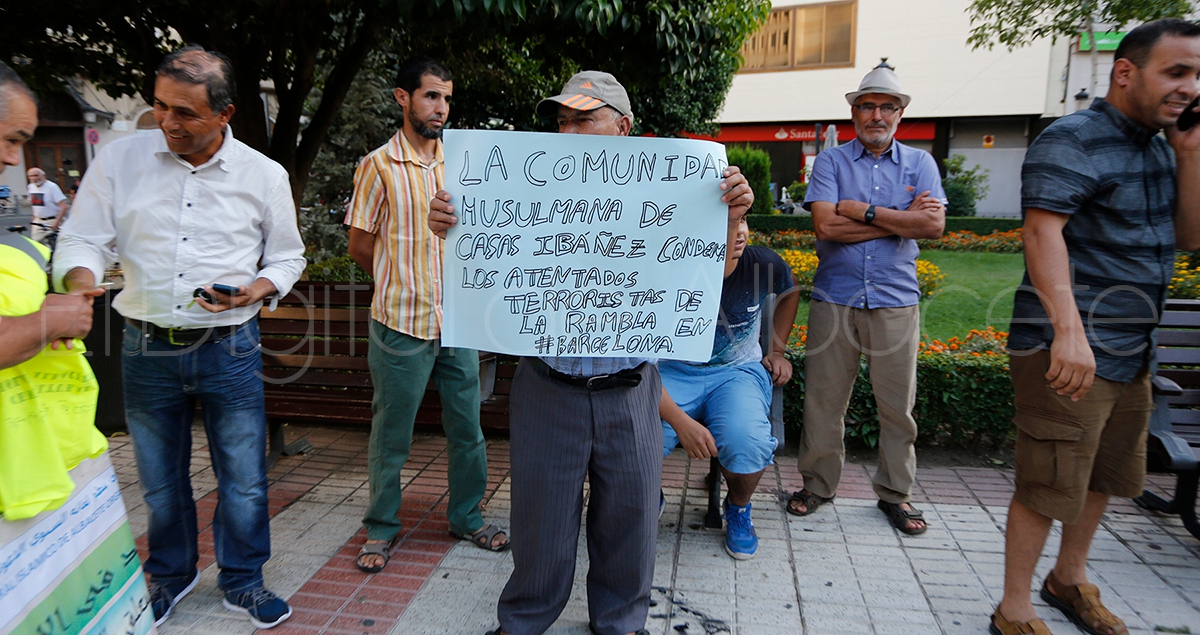 LA COMUNIDAD
MUSULMANA DE
CASAS IBÁÑEZ CONDENA
LOS ATENTADOS
TERRORISTAS DE
LA RAMBLA EN
#BARCELONA.
Santander
El Digital de Albacete